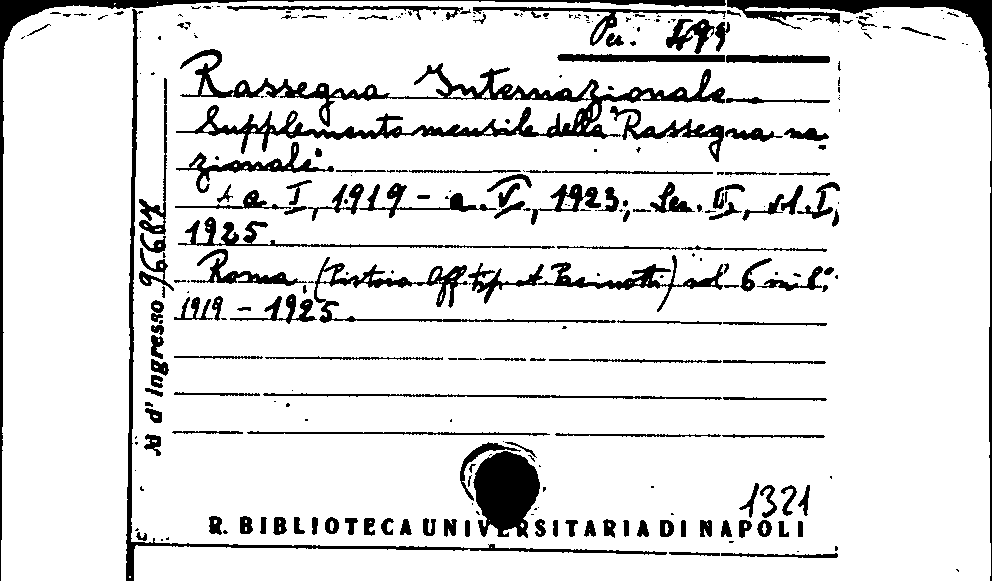 Per: 499
Rassegna Internazionale.
Supplemento mensile della "Rassegna na-
zionale".
a. I, 1919 - a. V, 1923; Ser. II, vol. I,
1925.
Roma, (Pistoia Off tip. A Pacinotti) vol 6 in 8°:
1919 - 1925.
N d'Ingresso 96687
1321
R. BIBLIOTECA UNIVERSITARIA DI NAPOLI